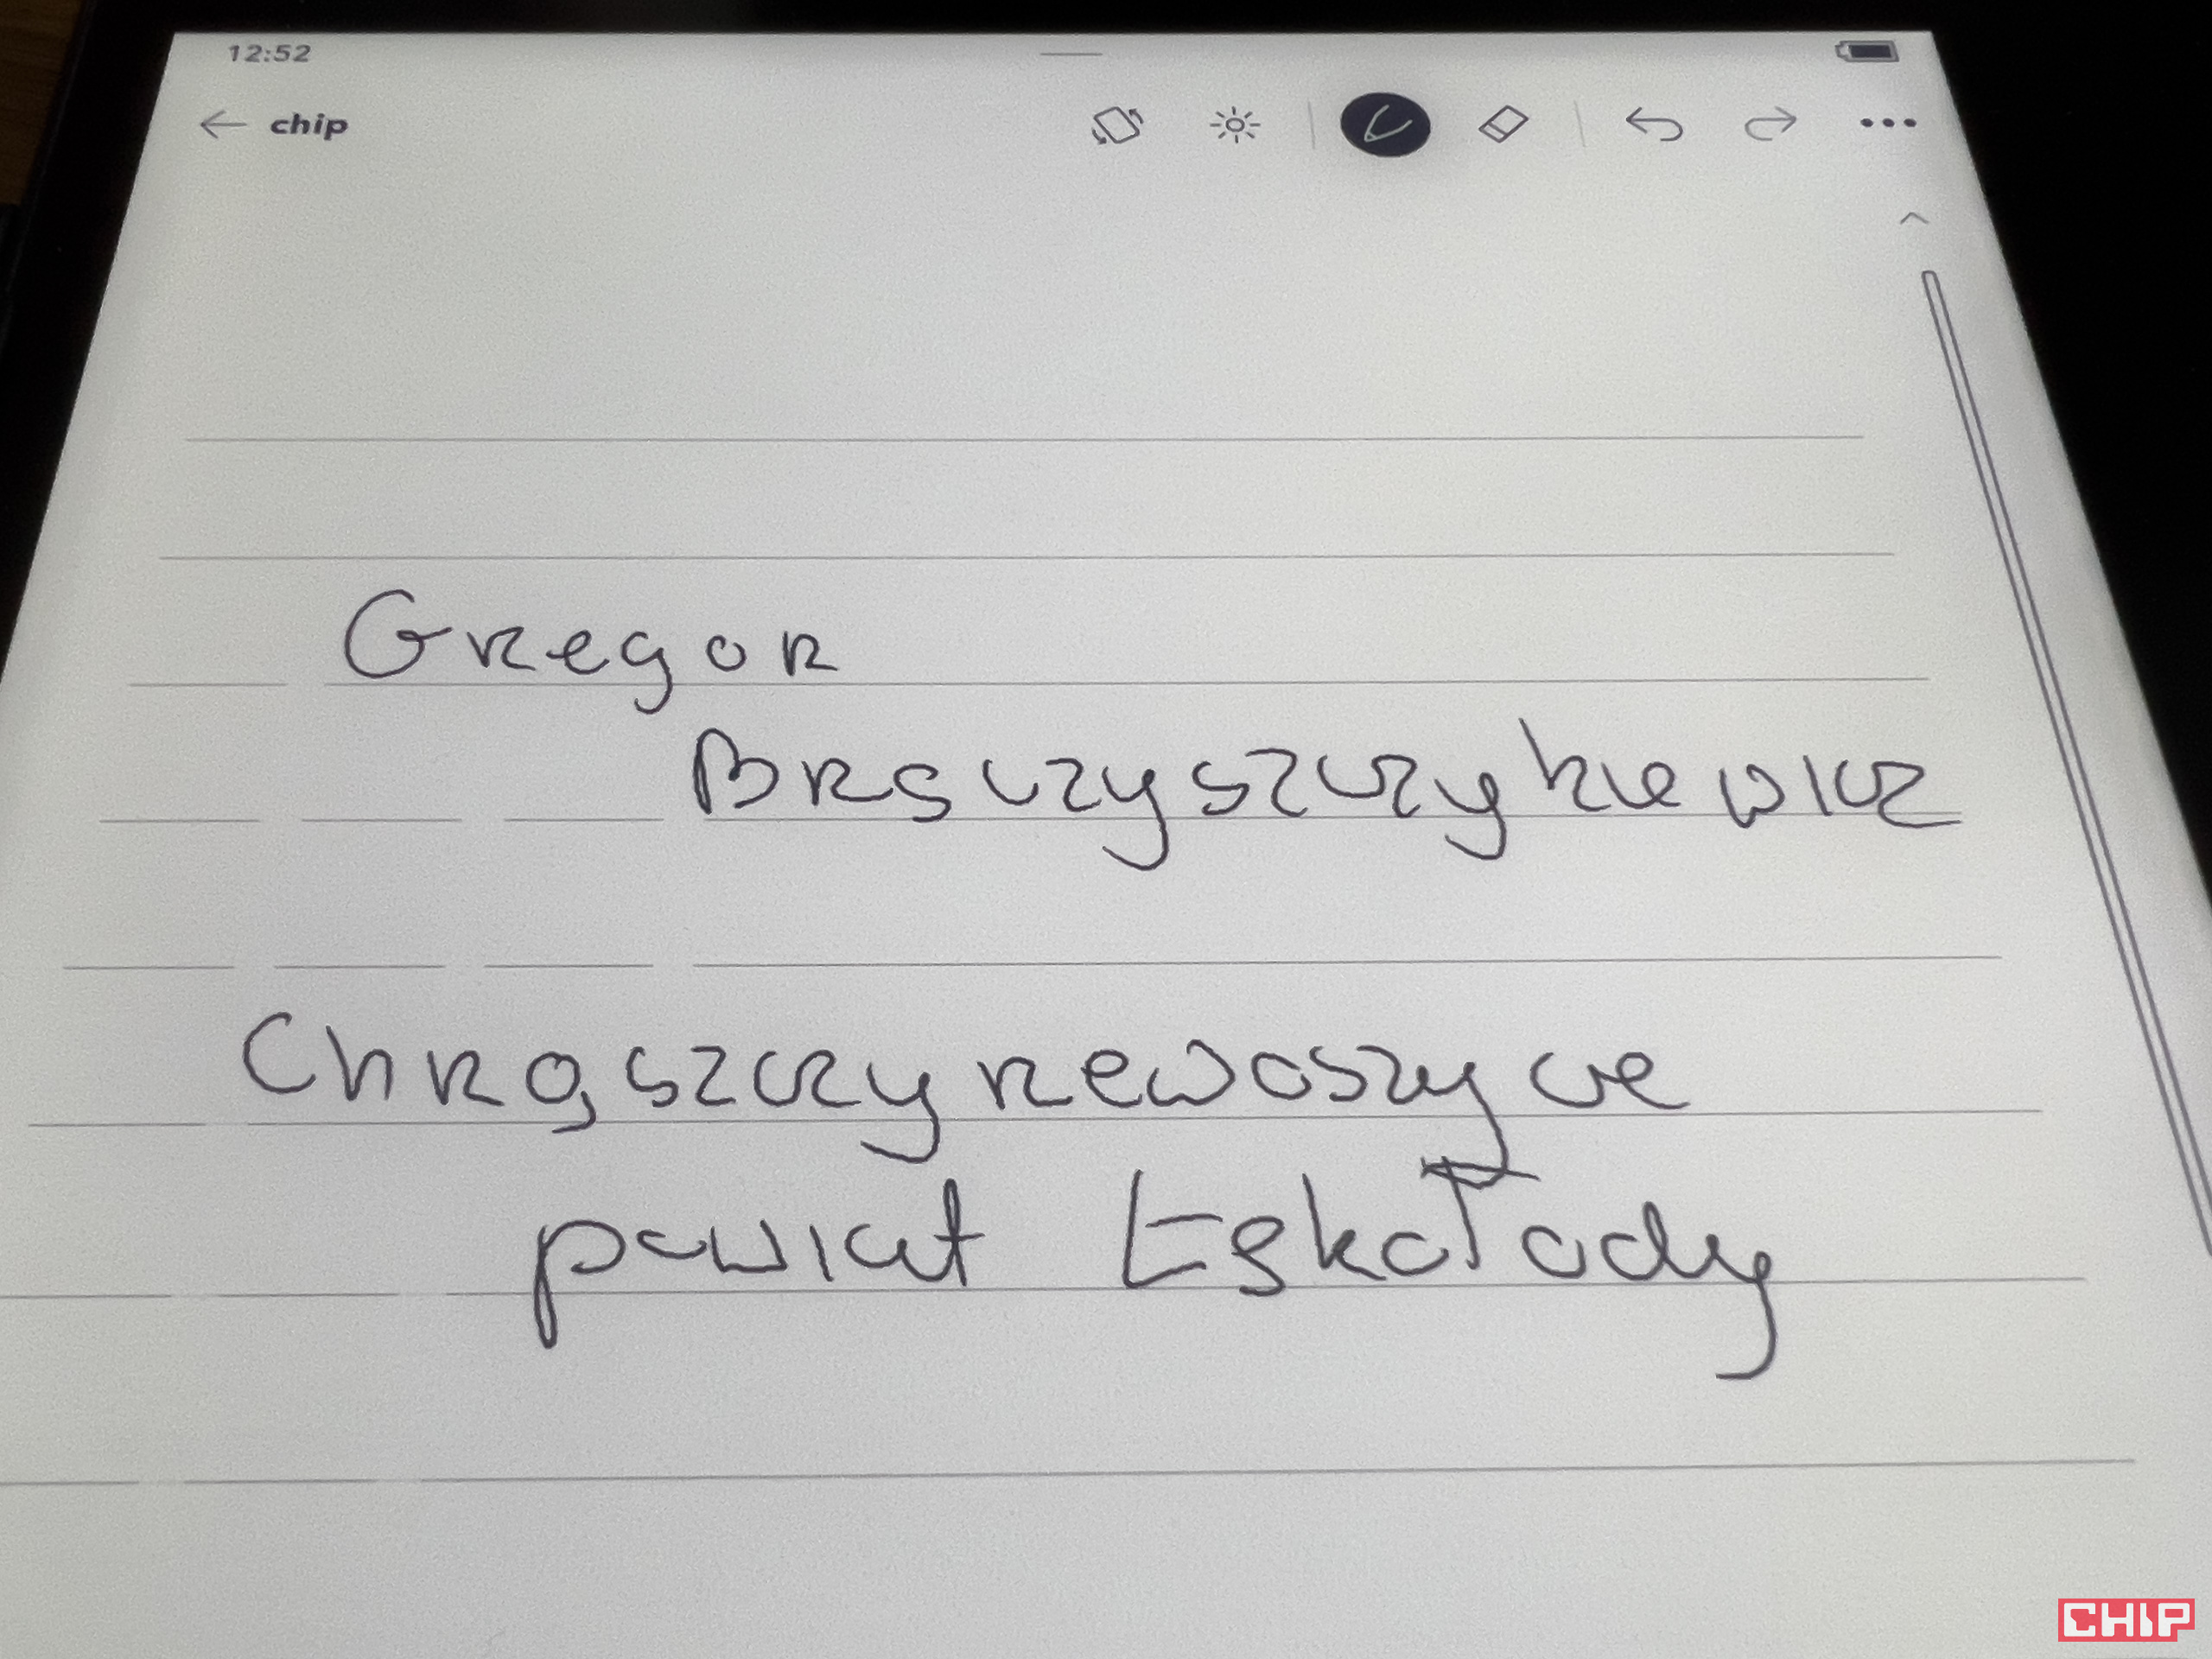 12:52
chip
Gregor
Brsczyszczykiewicz
Chrąszczyrewoszyce
powiat Eskałody
CHIP